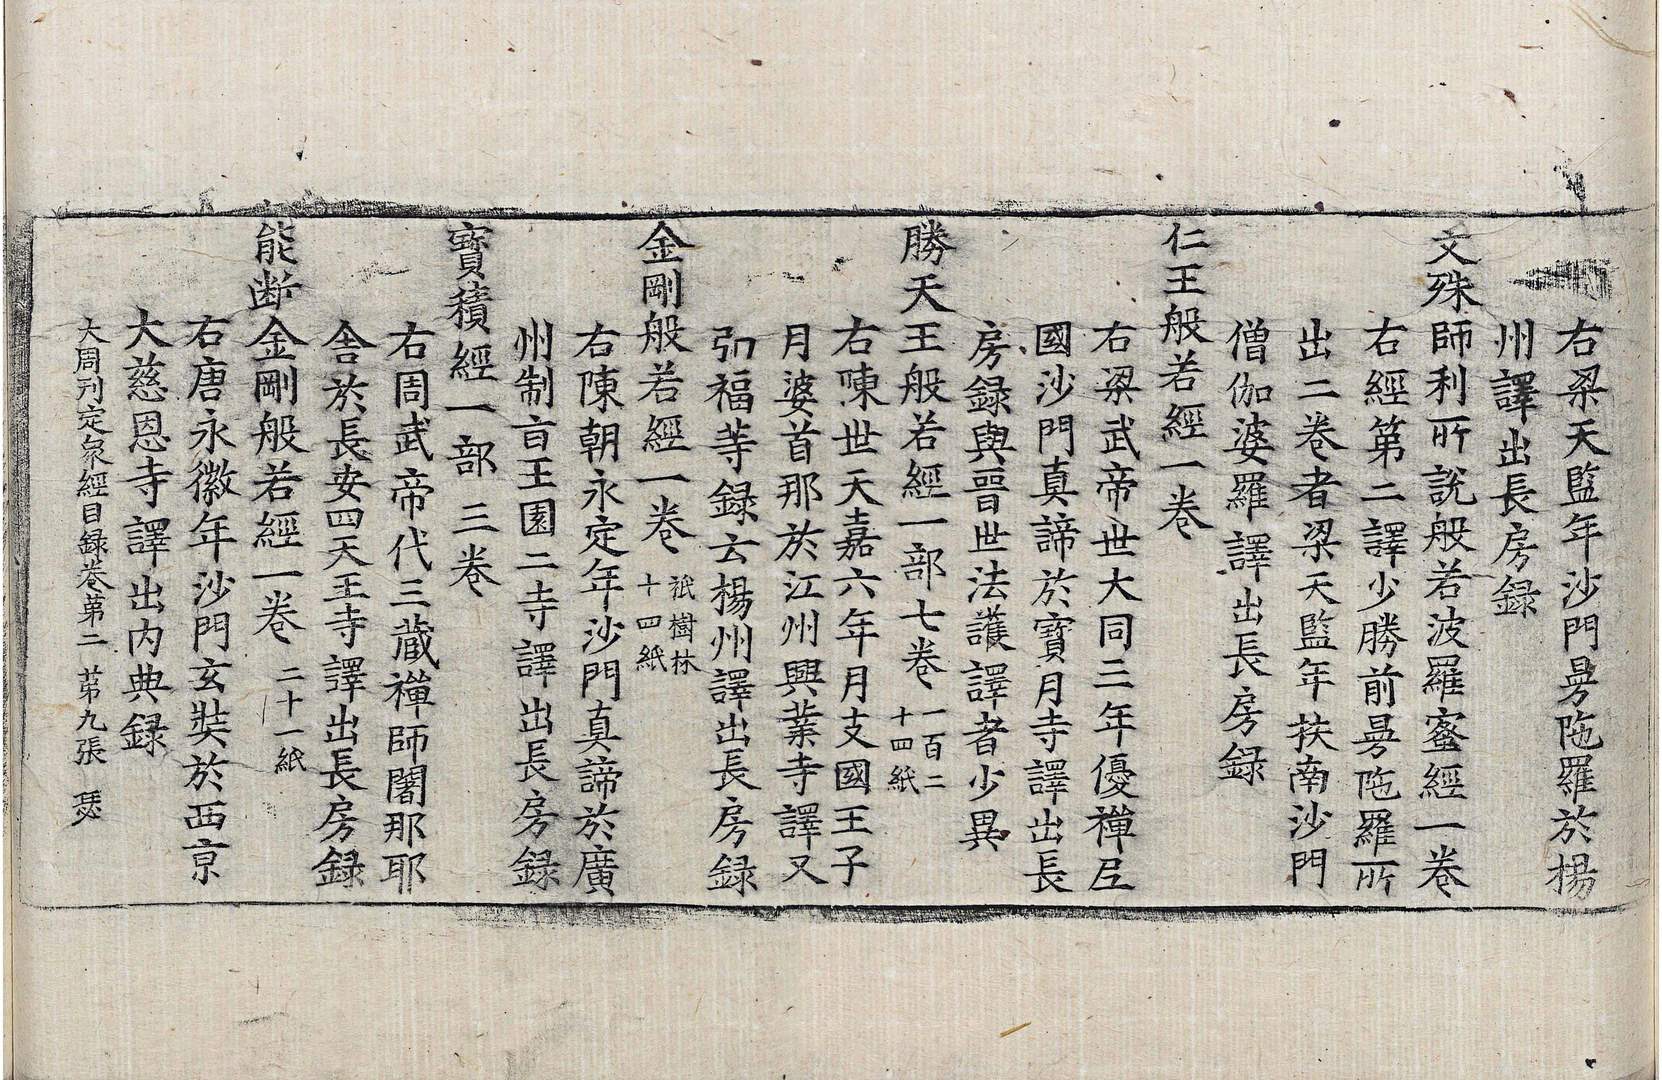 右梁天監年沙門曼陁羅於楊
州譯出長房録
文殊師利所說般若波羅蜜經一卷
右經第二譯少勝前曼陁羅所
出二卷者梁天監年扶南沙門
僧伽婆羅譯出長房録
仁王般若經一卷
右梁武帝世大同三年優禪尼
國沙門真諦於寶月寺譯出長
房録與晉世法護譯者少異
勝天王般若經一部七卷 一百二
十四紙
右陳世天嘉六年月支國王子
月婆首那於江州興業寺譯又
弘福寺録云楊州譯出長房録
金剛般若經一卷 祇樹林
十四紙
右陳朝永定年沙門真諦於廣
州制旨王園二寺譯出長房録
寶積經一部三卷
右周武帝代三藏禪師闍那耶
舍於長安四天王寺譯出長房録
能断金剛般若經一卷 二十一紙
右唐永徽年沙門玄奘於西京
大慈恩寺譯出內典録
大周刊定衆經目録卷第二 苐九張 瑟